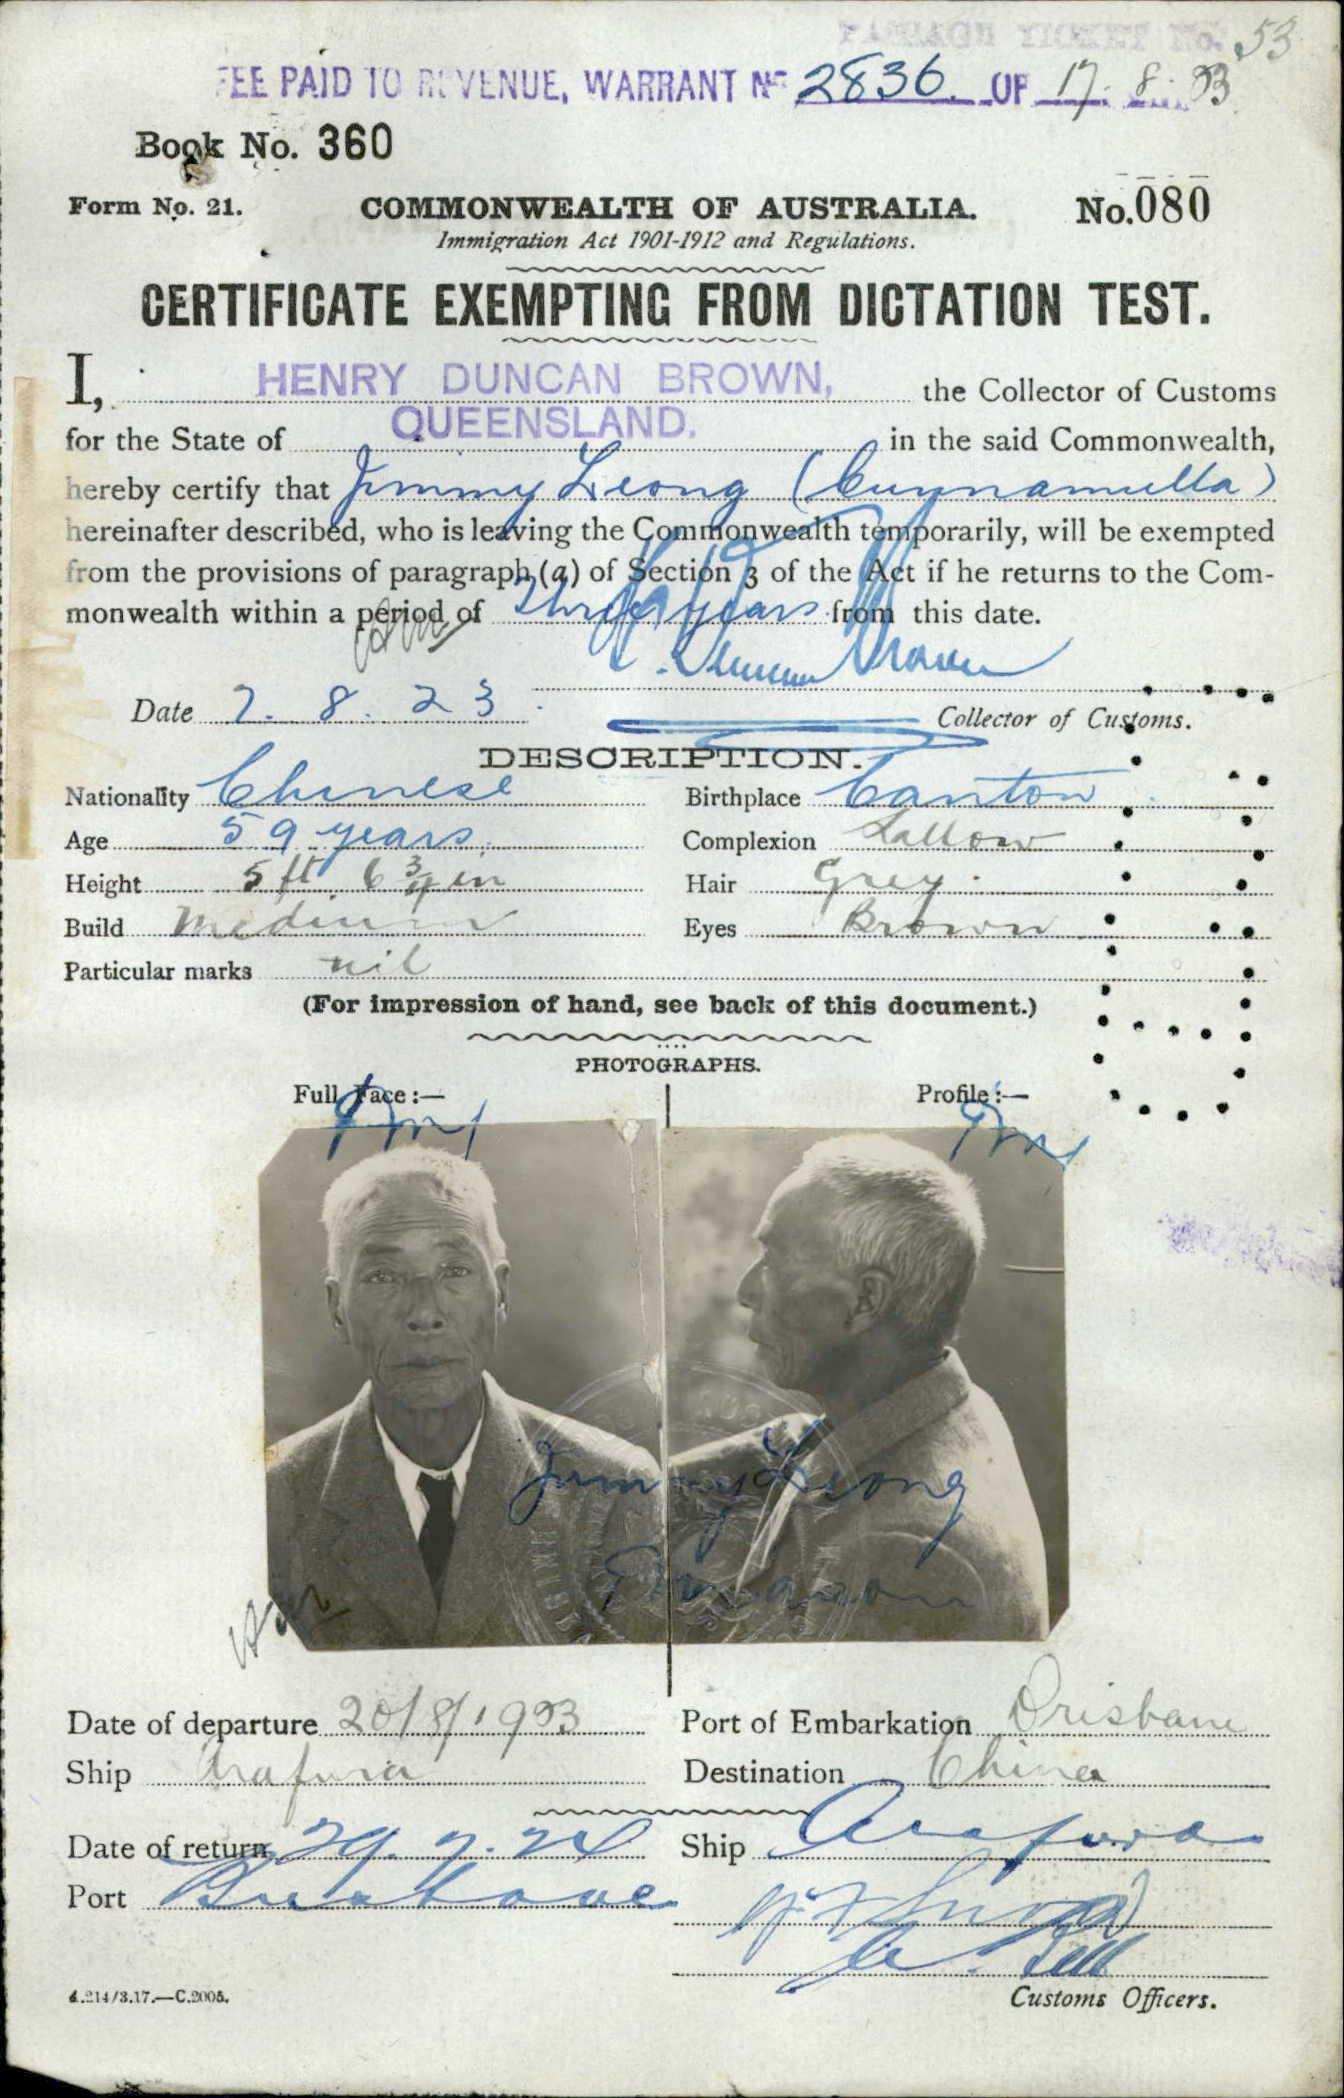 PASSAGE TICKET No. 53
FEE PAID TO REVENUE, WARRANT No 2836. OF 17. 8. 23
Book No. 360
Form No. 21.
COMMONWEALTH OF AUSTRALIA.
No. 080
Immigration Act 1901-1912 and Regulations.
CERTIFICATE EXEMPTING FROM DICTATION TEST.
I, HENRY DUNCAN BROWN, the Collector of Customs
for the State of QUEENSLAND. in the said Commonwealth,
hereby certify that Jimmy Leong (Cunnamulla)
hereinafter described, who is leaving the Commonwealth temporarily, will be exempted
from the provisions of paragraph (a) of Section 3 of the Act if he returns to the Com-
monwealth within a period of Three years from this date.
H. Duncan Brown
Date 7. 8. 23.
Collector of Customs.
DESCRIPTION.
Nationality Chinese
Birthplace Canton.
Age 59 years.
Complexion Sallow
Height 5 ft 6 3/4 in
Hair Grey.
Build Medium
Eyes Brown
Particular marks nil
(For impression of hand, see back of this document.)
PHOTOGRAPHS.
Full Face :—
Profile :—
Jimmy Leong
Date of departure 20/8/1923
Port of Embarkation Brisbane
Ship Arafura
Destination China
Date of return 29. 7. 24
Ship Arafura
Port Brisbane
Customs Officers.
4.214/3.17.—C.2005.